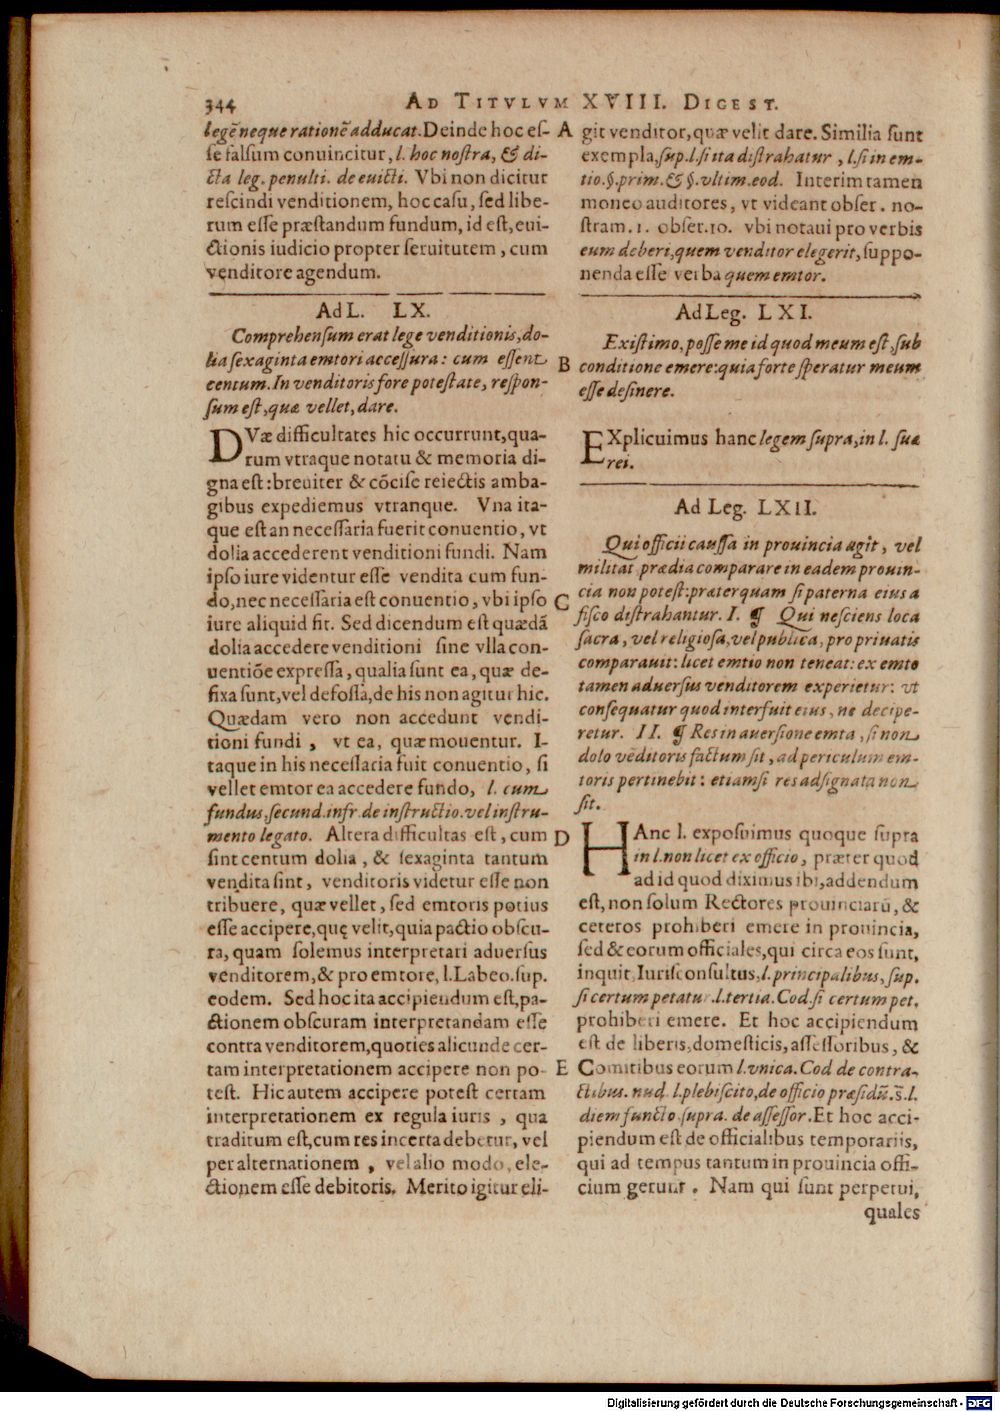 344
AD TITVLVM XVIII. DIGEST.
legẽ neque rationẽ adducat. Deinde hoc es-
se falsum conuincitur, l. hoc nostra, & di-
cta leg. penulti. de euicti. Vbi non dicitur
rescindi venditionem, hoc casu, sed libe-
rum esse præstandum fundum, id est, eui-
ctionis iudicio propter seruitutem, cum
venditore agendum.
Ad L. LX.
Comprehensum erat lege venditionis, do-
lia sexaginta emtori accessura: cum essent
centum. In venditoris fore potestate, respon-
sum est, quæ vellet, dare.
DVæ difficultates hic occurrunt, qua-
rum vtraque notatu & memoria di-
gna est: breuiter & cõcise reiectis amba-
gibus expediemus vtranque. Vna ita-
que est an necessaria fuerit conuentio, vt
dolia accederent venditioni fundi. Nam
ipso iure videntur esse vendita cum fun-
do, nec necessaria est conuentio, vbi ipso
iure aliquid fit. Sed dicendum est quædã
dolia accedere venditioni sine vlla con-
uentiõe expressa, qualia sunt ea, quæ de-
fixa sunt, vel defossa, de his non agitur hic.
Quædam vero non accedunt vendi-
tioni fundi, vt ea, quæ mouentur. I-
taque in his necessaria fuit conuentio, si
vellet emtor ea accedere fundo, l. cum
fundus, secund. infr. de instructio. vel instru-
mento legato. Altera difficultas est, cum
sint centum dolia, & sexaginta tantum
vendita sint, venditoris videtur esse non
tribuere, quæ vellet, sed emtoris potius
esse accipere, quę velit, quia pactio obscu-
ra, quam solemus interpretari aduersus
venditorem, & pro emtore, l. Labeo. sup.
eodem. Sed hoc ita accipiendum est, pa-
ctionem obscuram interpretandam esse
contra venditorem, quoties alicunde cer-
tam interpretationem accipere non po-
test. Hic autem accipere potest certam
interpretationem ex regula iuris, qua
traditum est, cum res incerta debetur, vel
per alternationem, vel alio modo, ele-
ctionem esse debitoris. Merito igitur eli-
A
B
C
D
E
git venditor, quæ velit dare. Similia sunt
exempla, sup. l. si ita distrahatur, l. si in em-
tio. §. prim. & §. vltim. eod. Interim tamen
moneo auditores, vt videant obser. no-
stram. 1. obser. 10. vbi notaui pro verbis
eum deberi, quem venditor elegerit, suppo-
nenda esse verba quem emtor.
Ad Leg. LXI.
Existimo, posse me id quod meum est, sub
conditione emere: quia forte speratur meum
esse desinere.
EXplicuimus hanc legem supra, in l. suæ
rei.
Ad Leg. LXII.
Qui officii caussa in prouincia agit, vel
militat prædia comparare in eadem prouin-
cia non potest: præterquam si paterna eius a
fisco distrahantur. I. ¶ Qui nesciens loca
sacra, vel religiosa, vel publica, pro priuatis
comparauit: licet emtio non teneat: ex emto
tamen aduersus venditorem experietur: vt
consequatur quod interfuit eius, ne decipe-
retur. II. ¶ Res in auersione emta, si non
dolo vẽditoris factum sit, ad periculum em-
toris pertinebit: etiamsi res adsignata non
sit.
HAnc l. exposuimus quoque supra
in l. non licet ex officio, præter quod
ad id quod diximus ibi, addendum
est, non solum Rectores prouinciarũ, &
ceteros prohiberi emere in prouincia,
sed & eorum officiales, qui circa eos sunt,
inquit Iurisconsultus, l. principalibus, sup.
si certum petatur. l. tertia. Cod. si certum pet.
prohiberi emere. Et hoc accipiendum
est de liberis, domesticis, assessoribus, &
Comitibus eorum l. vnica. Cod de contra-
ctibus. iud. l. plebiscito, de officio præsidũ. s̃. l.
diem functo. supra. de assessor. Et hoc acci-
piendum est de officialibus temporariis,
qui ad tempus tantum in prouincia offi-
cium gerunt. Nam qui sunt perpetui,
quales
Digitalisierung gefördert durch die Deutsche Forschungsgemeinschaft - DFG